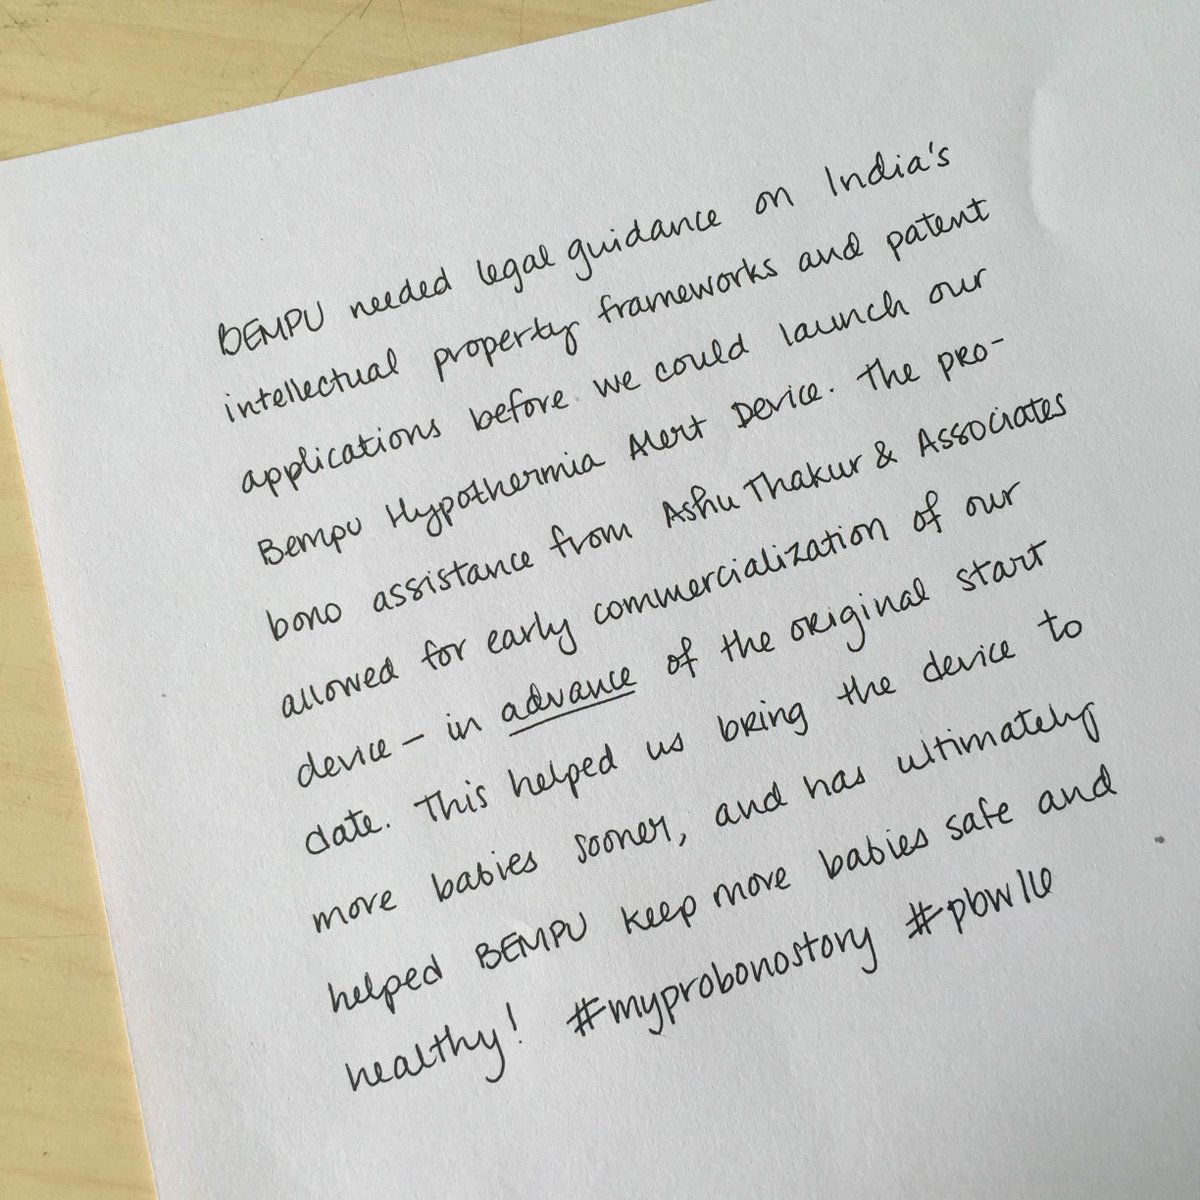 BEMPU needed legal guidance on India's
intellectual property frameworks and patent
applications before we could launch our
Bempu Hypothermia Alert Device. The pro-
bono assistance from Ashu Thakur & Associates
allowed for early commercialization of our
device – in advance of the original start
date. This helped us bring the device to
more babies sooner, and has ultimately
helped BEMPU keep more babies safe and
healthy! #myprobonostory #pbw16